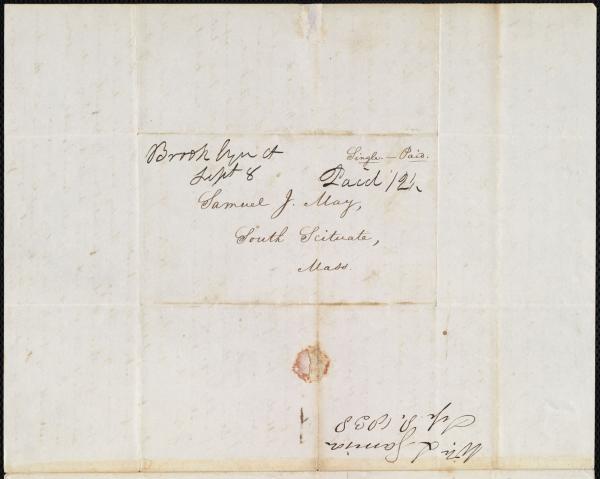 Brooklyn ct
Sept 8
Single. – Paid.
Paid 12½
Samuel J. May,
South Scituate,
Mass.
Wm. L. Garrison
Sep. 8. 1838